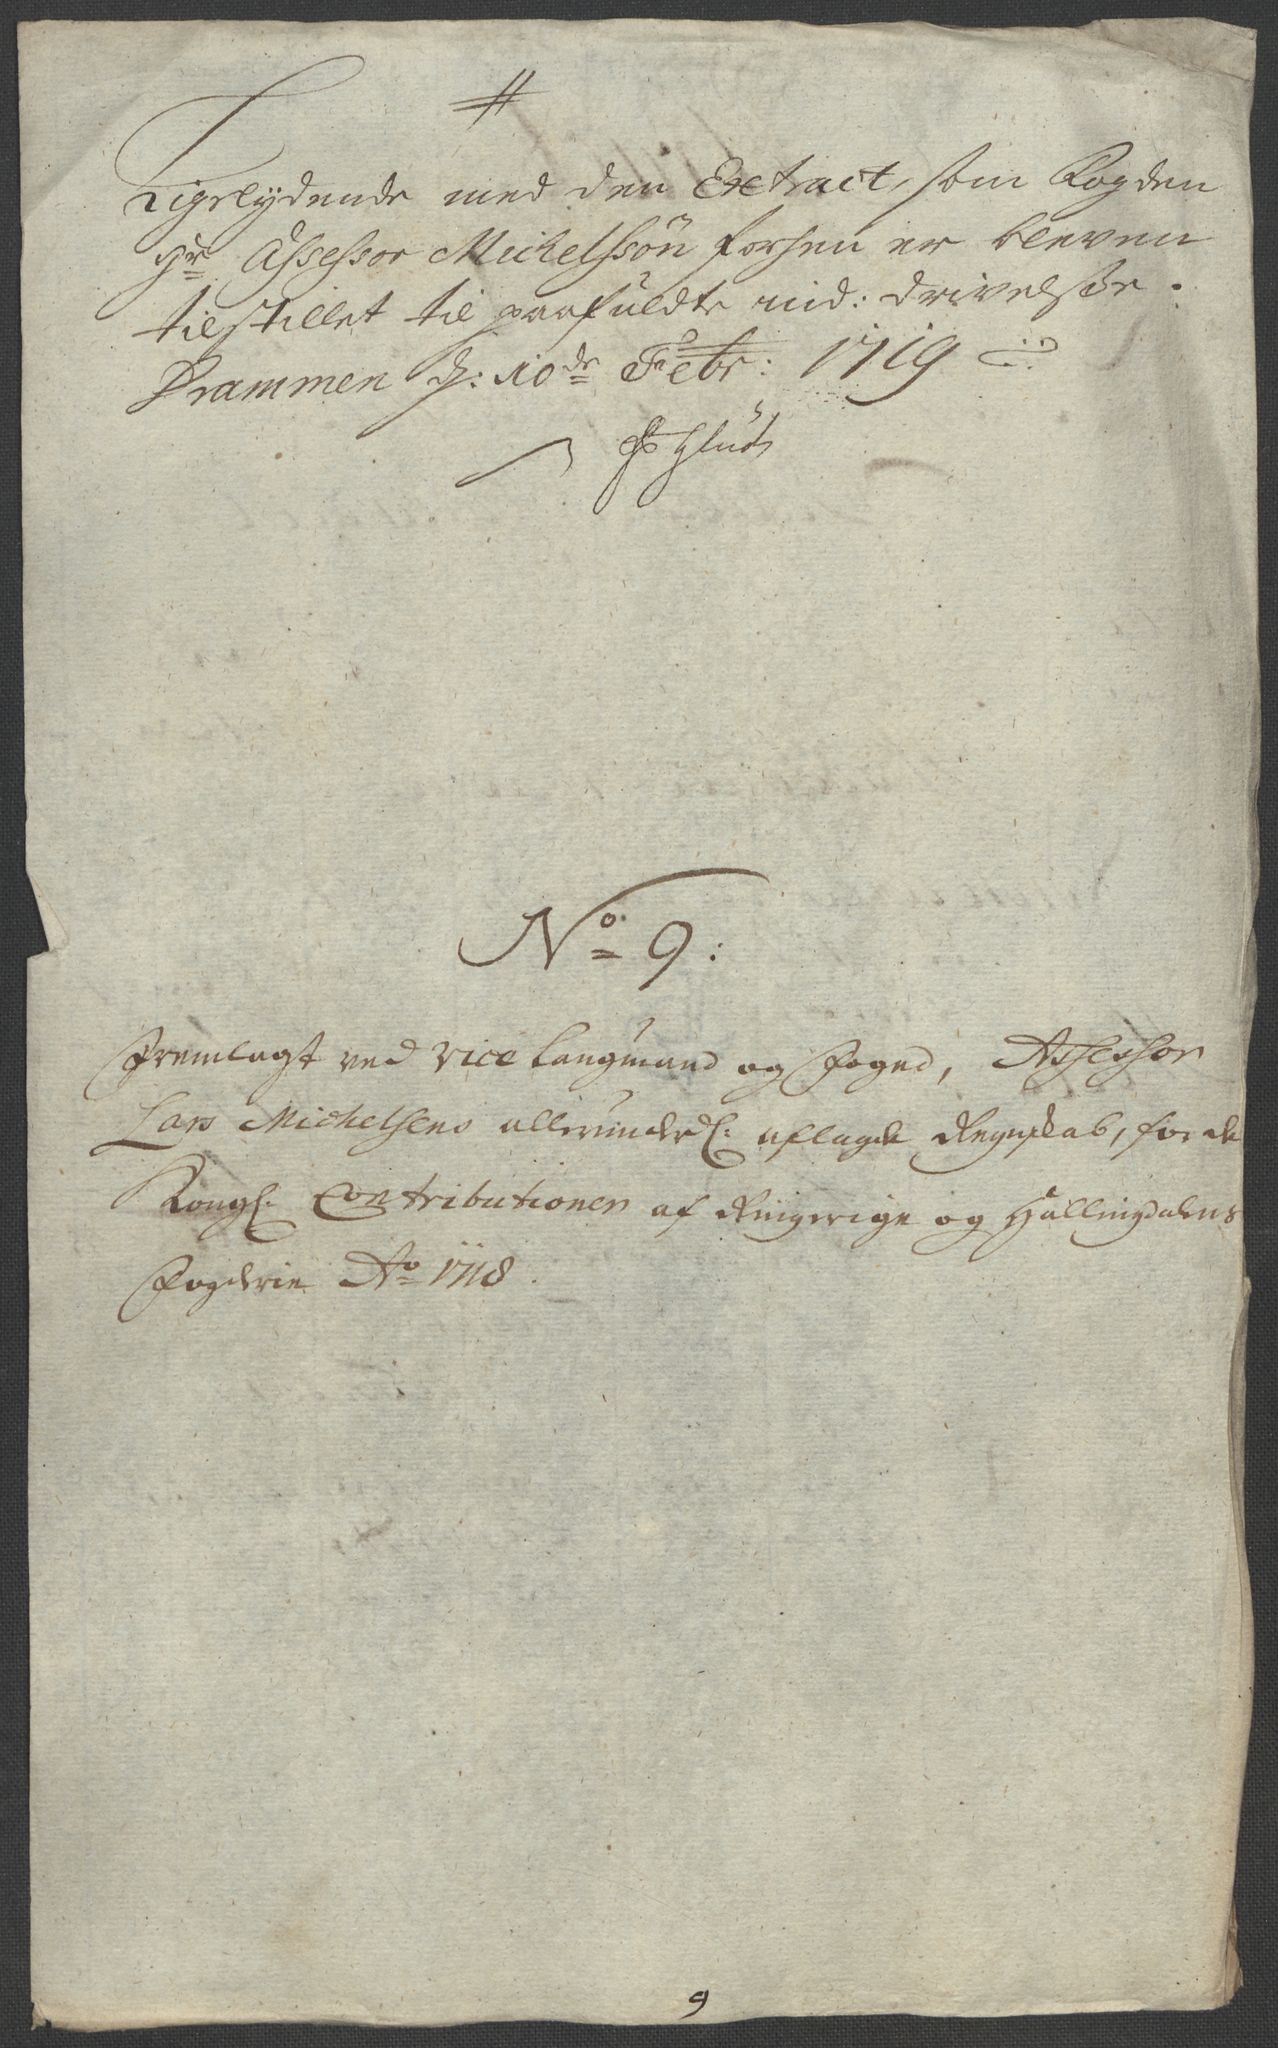 Ligelydende med den Extract, som Fogden
Hr Assessor Michelssøn forhen er bleven
tilstillet til paafuldte ind: drivelse.
Drammen d: 10de Febr: 1719
No 9:
Fremlagt ved Vice Laugmand og Foged, Assessor
Lars Michelsens allerunderd: aflagde Regnskab, for de
Kongl: Contributioner af Ringerige og Hallingdalens
Fogderie Ao 1718.
9